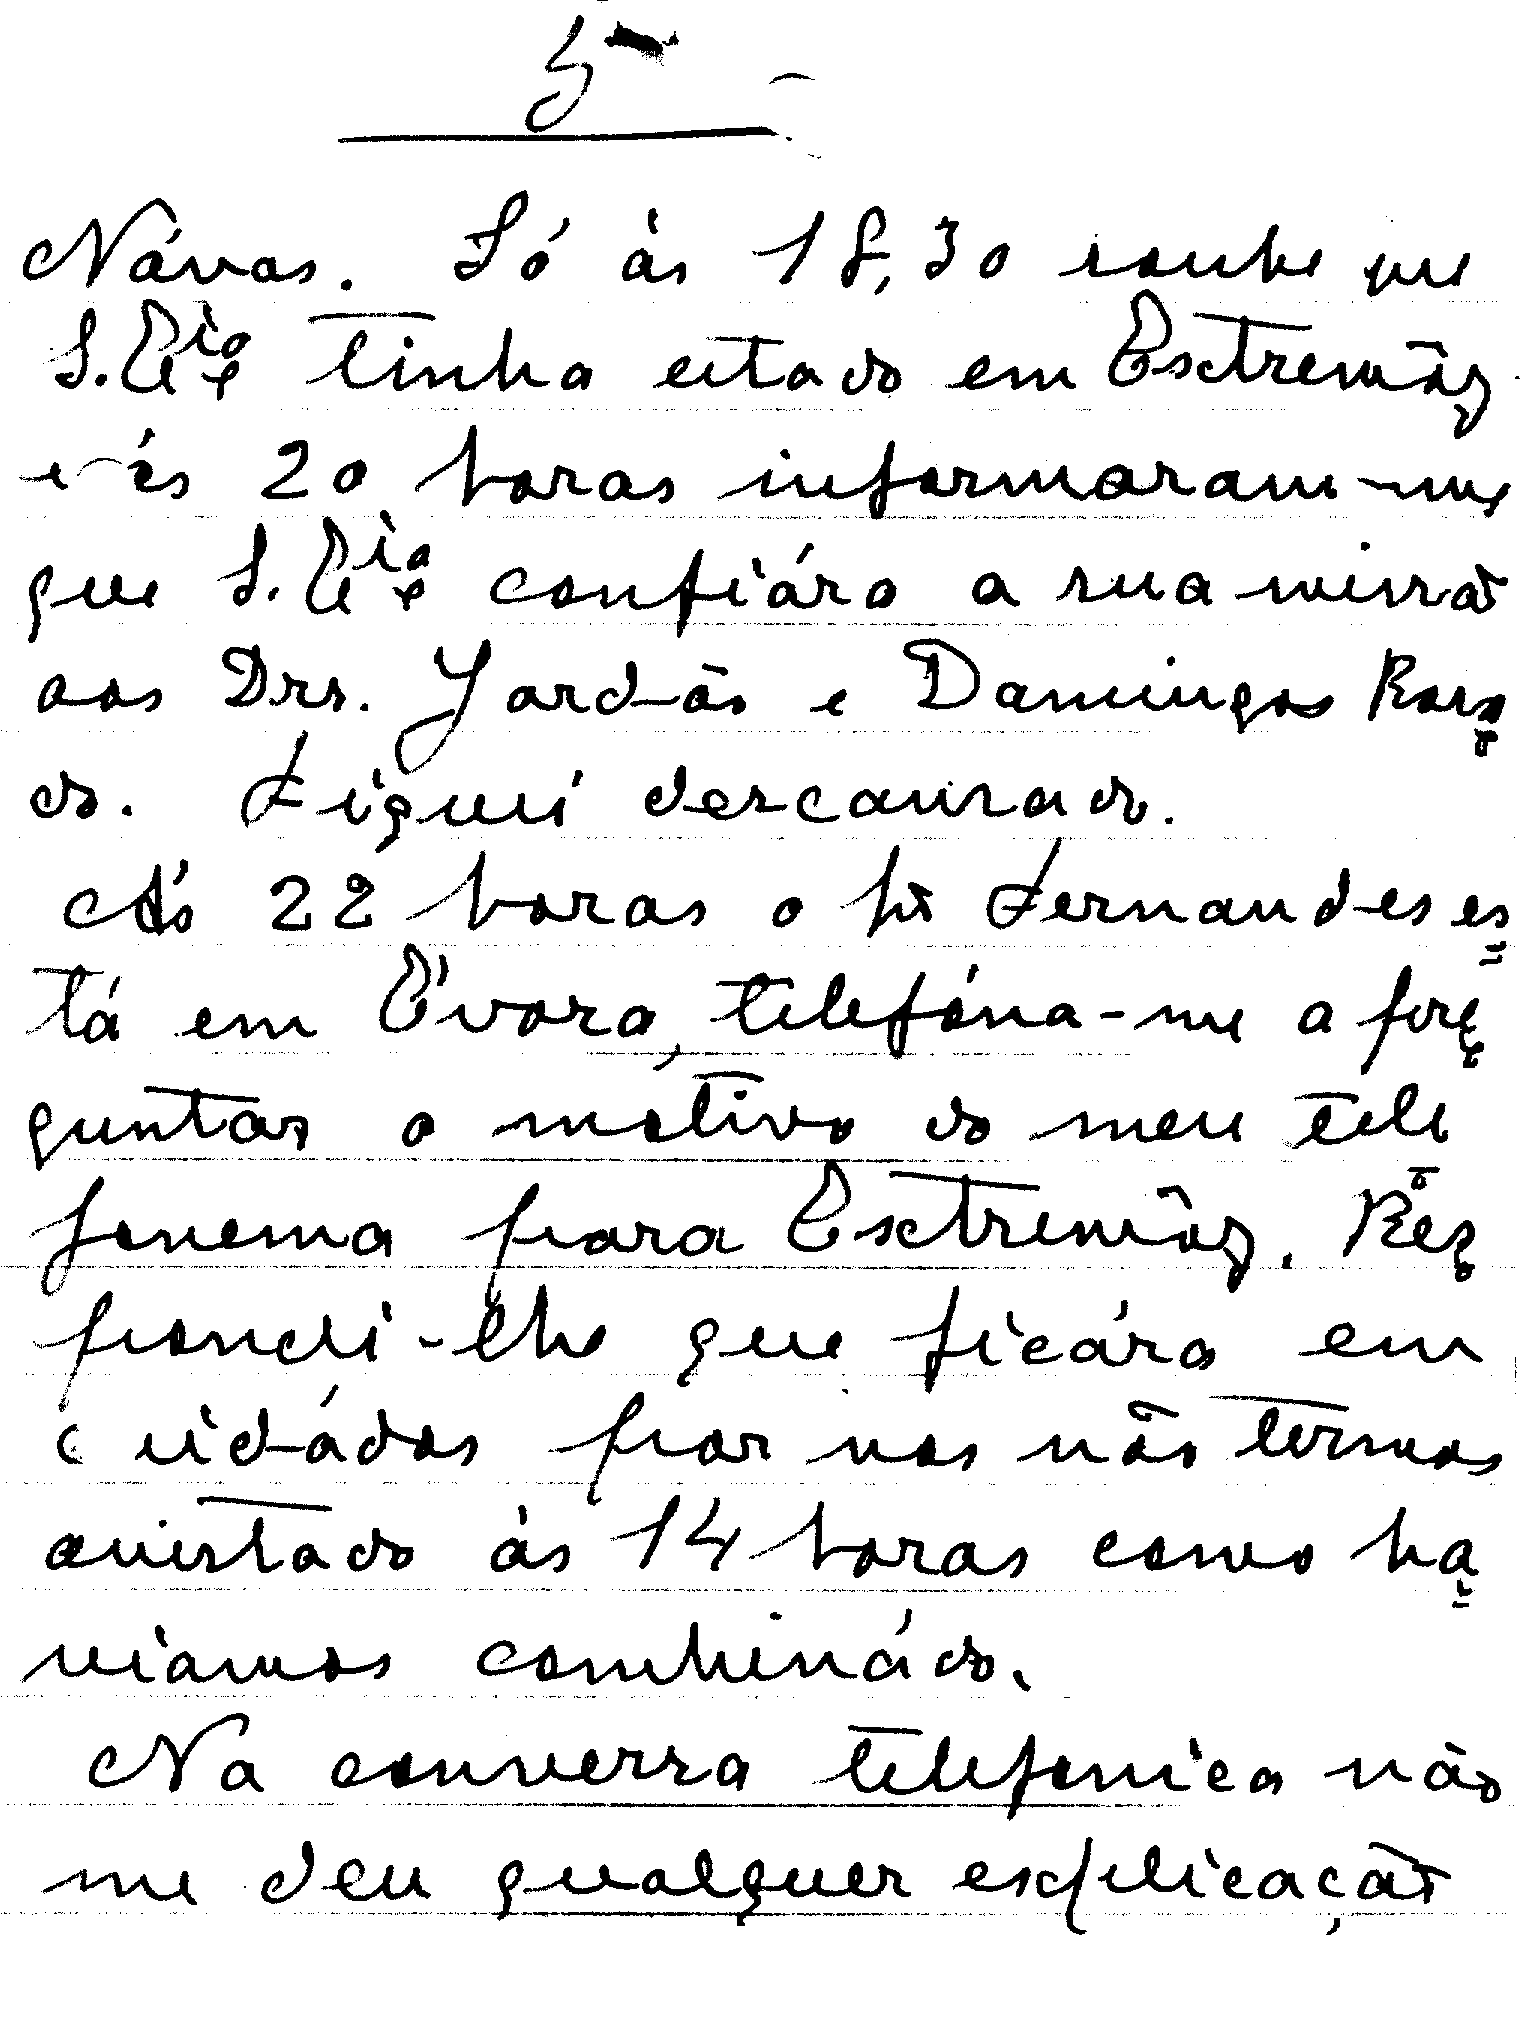 5
Návas. Só às 18,30 soube que
S. Ex.cia tinha estado em Extremôz
e às 20 horas informaram-me
que S. Ex.cia confiára a sua missão
aos Drs. Jordão e Domingos Rosa
do. Fiquei descansado.
Ás 22 horas o Fernandes es
tá em Évora, telefóna-me a per
guntar o motivo do meu tele
fonema para Extremôz. Res
pondi-lhe que ficára em
cuidádos por nos não termos
avistado às 14 horas como ha
viamos combinádo.
Na conversa telefonica não
me deu qualquer explicação